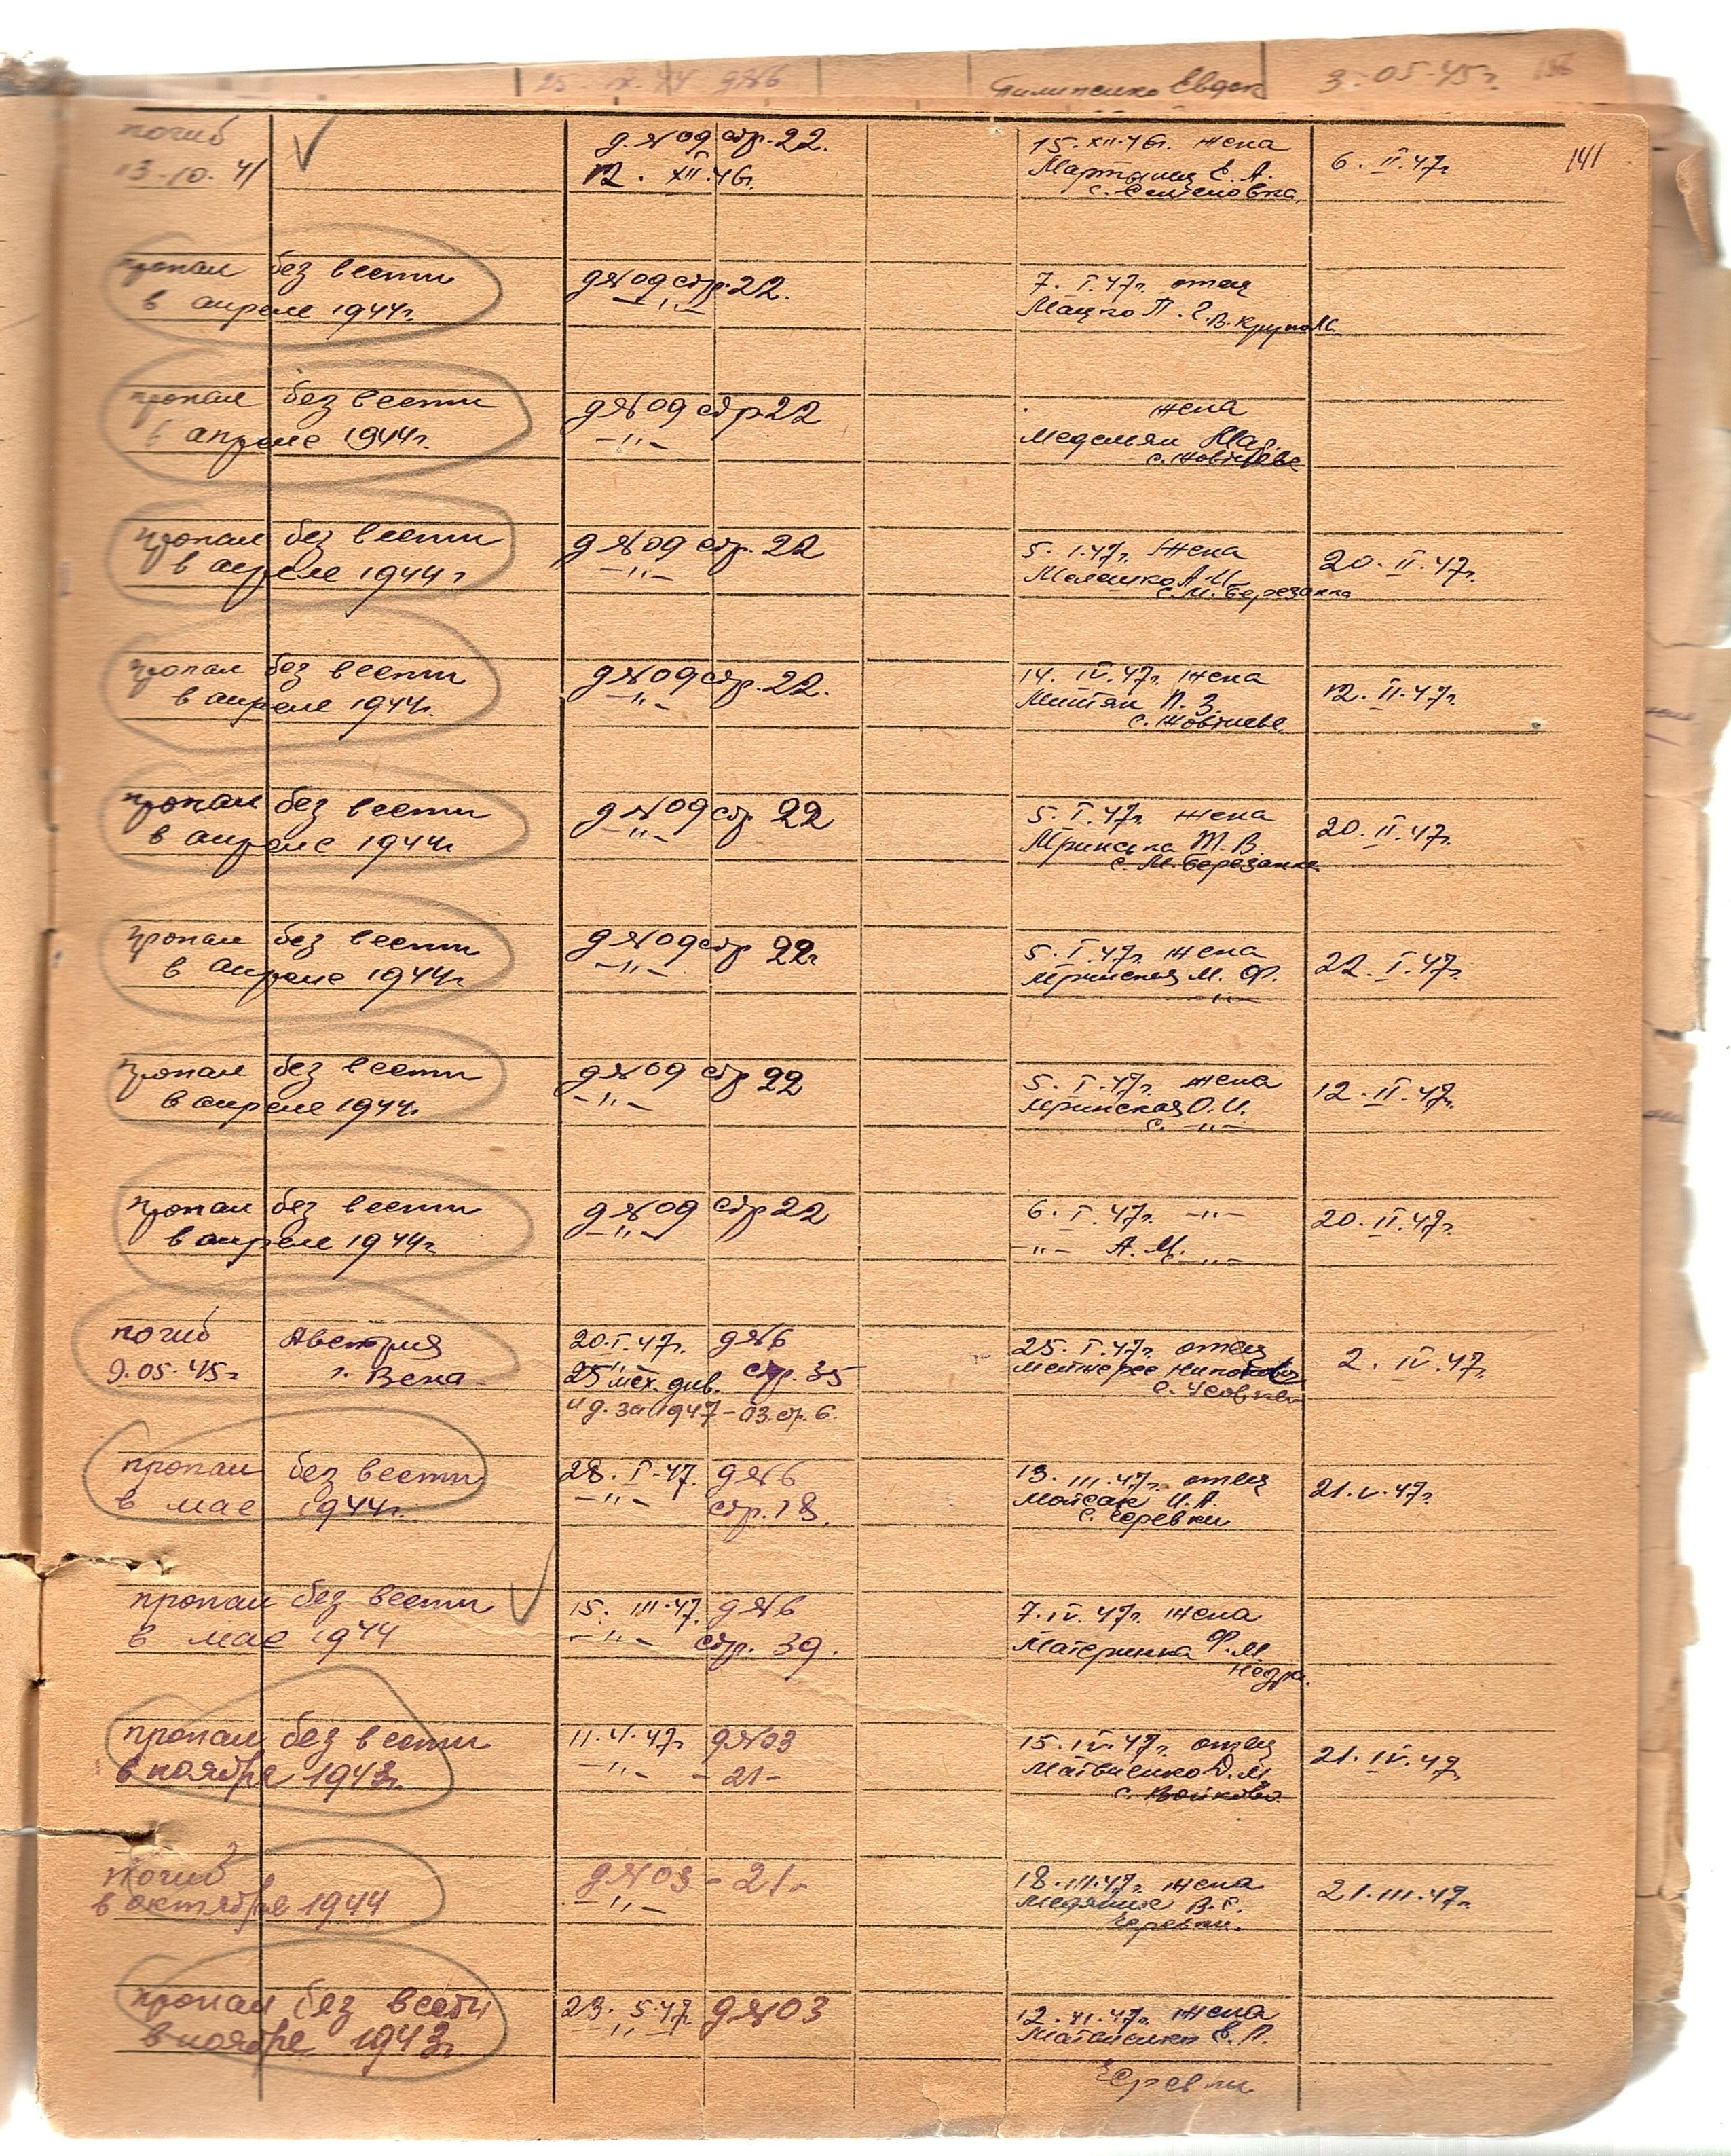 25. IX. 44 д№6 Пилипенко Евдок 3. 05. 45г. 156
141
погиб д.№09 стр. 22. 15. XII. 46г. жена 6. II. 47г.
13. 10. 41 12. XII. 46г. Мартыняк Е. А.
с. Семеновка
пропал без вести д№09 стр. 22. 7. I. 47г. отец
в апреле 1944г. -"- Мацко П. Г. В. Круполь
пропал без вести д№09 стр 22 жена
в апреле 1944г. -"- Медемян
с. Жовтневе
пропал без вести д№09 стр. 22 5. 1. 47г. жена 20. II. 47г.
в апреле 1944г -"- Малашко А. И.
с. М. Березанка
пропал без вести д№09 стр. 22. 14. IV. 47г. жена 12. II. 47г.
в апреле 1944г. -"- П. З.
с. Жовтневе
пропал без вести д№09 стр 22 5. I. 47г. жена 20. II. 47г.
в апреле 1944г -"- Мринська Т. В.
с. М. Березанка
пропал без вести д№09 стр 22 5. I. 47г. жена 22. I. 47г.
в апреле 1944г -"- Мринская М. Ф.
-"-
пропал без вести д№09 стр 22 5. I. 47г. жена 12. II. 47г.
в апреле 1944г. -"- Мринская О. И.
с. -"-
пропал без вести д№09 стр 22 6. I. 47г. -"- 20. II. 47г.
в апреле 1944г. -"- -"- А. М. -"-
погиб Австрия 20. I. 47г. д№6 25. I. 47г. отец 2. IV. 47г.
9. 05. 45г г. Вена 25 мех. див. стр. 35
и д. за 1947 - 03. стр. 6.
пропал без вести 28. I. 47. д№6 13. III. 47г. отец 21. V. 47г.
в мае 1944г. -"- стр. 18. Мойсак И. А.
с. Черевки
пропал без вести 15. III. 47. д№6 7. IV. 47г. жена
в мае 1944 -"- стр. 39. Материнка Ф. М.
Недра.
пропал без вести 11. 4. 47г. д№03 15. IV. 47г. отец 21. IV. 47
в ноябре 1943г. -"- - 21 - Матвиенко Д. М.
с. Войково.
погиб д№03 - 21 - 18. III. 47г. жена 21. III. 47г.
в октябре 1944 -"- В. Г.
Черевки.
пропал без вести 23. 5. 47г. д№03 12. VI. 47г. жена
в ноябре 1943г. -"- Матвиенко Е. П.
Черевки